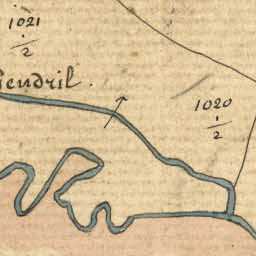 1021
1/2
Kendril.
1020
1/2